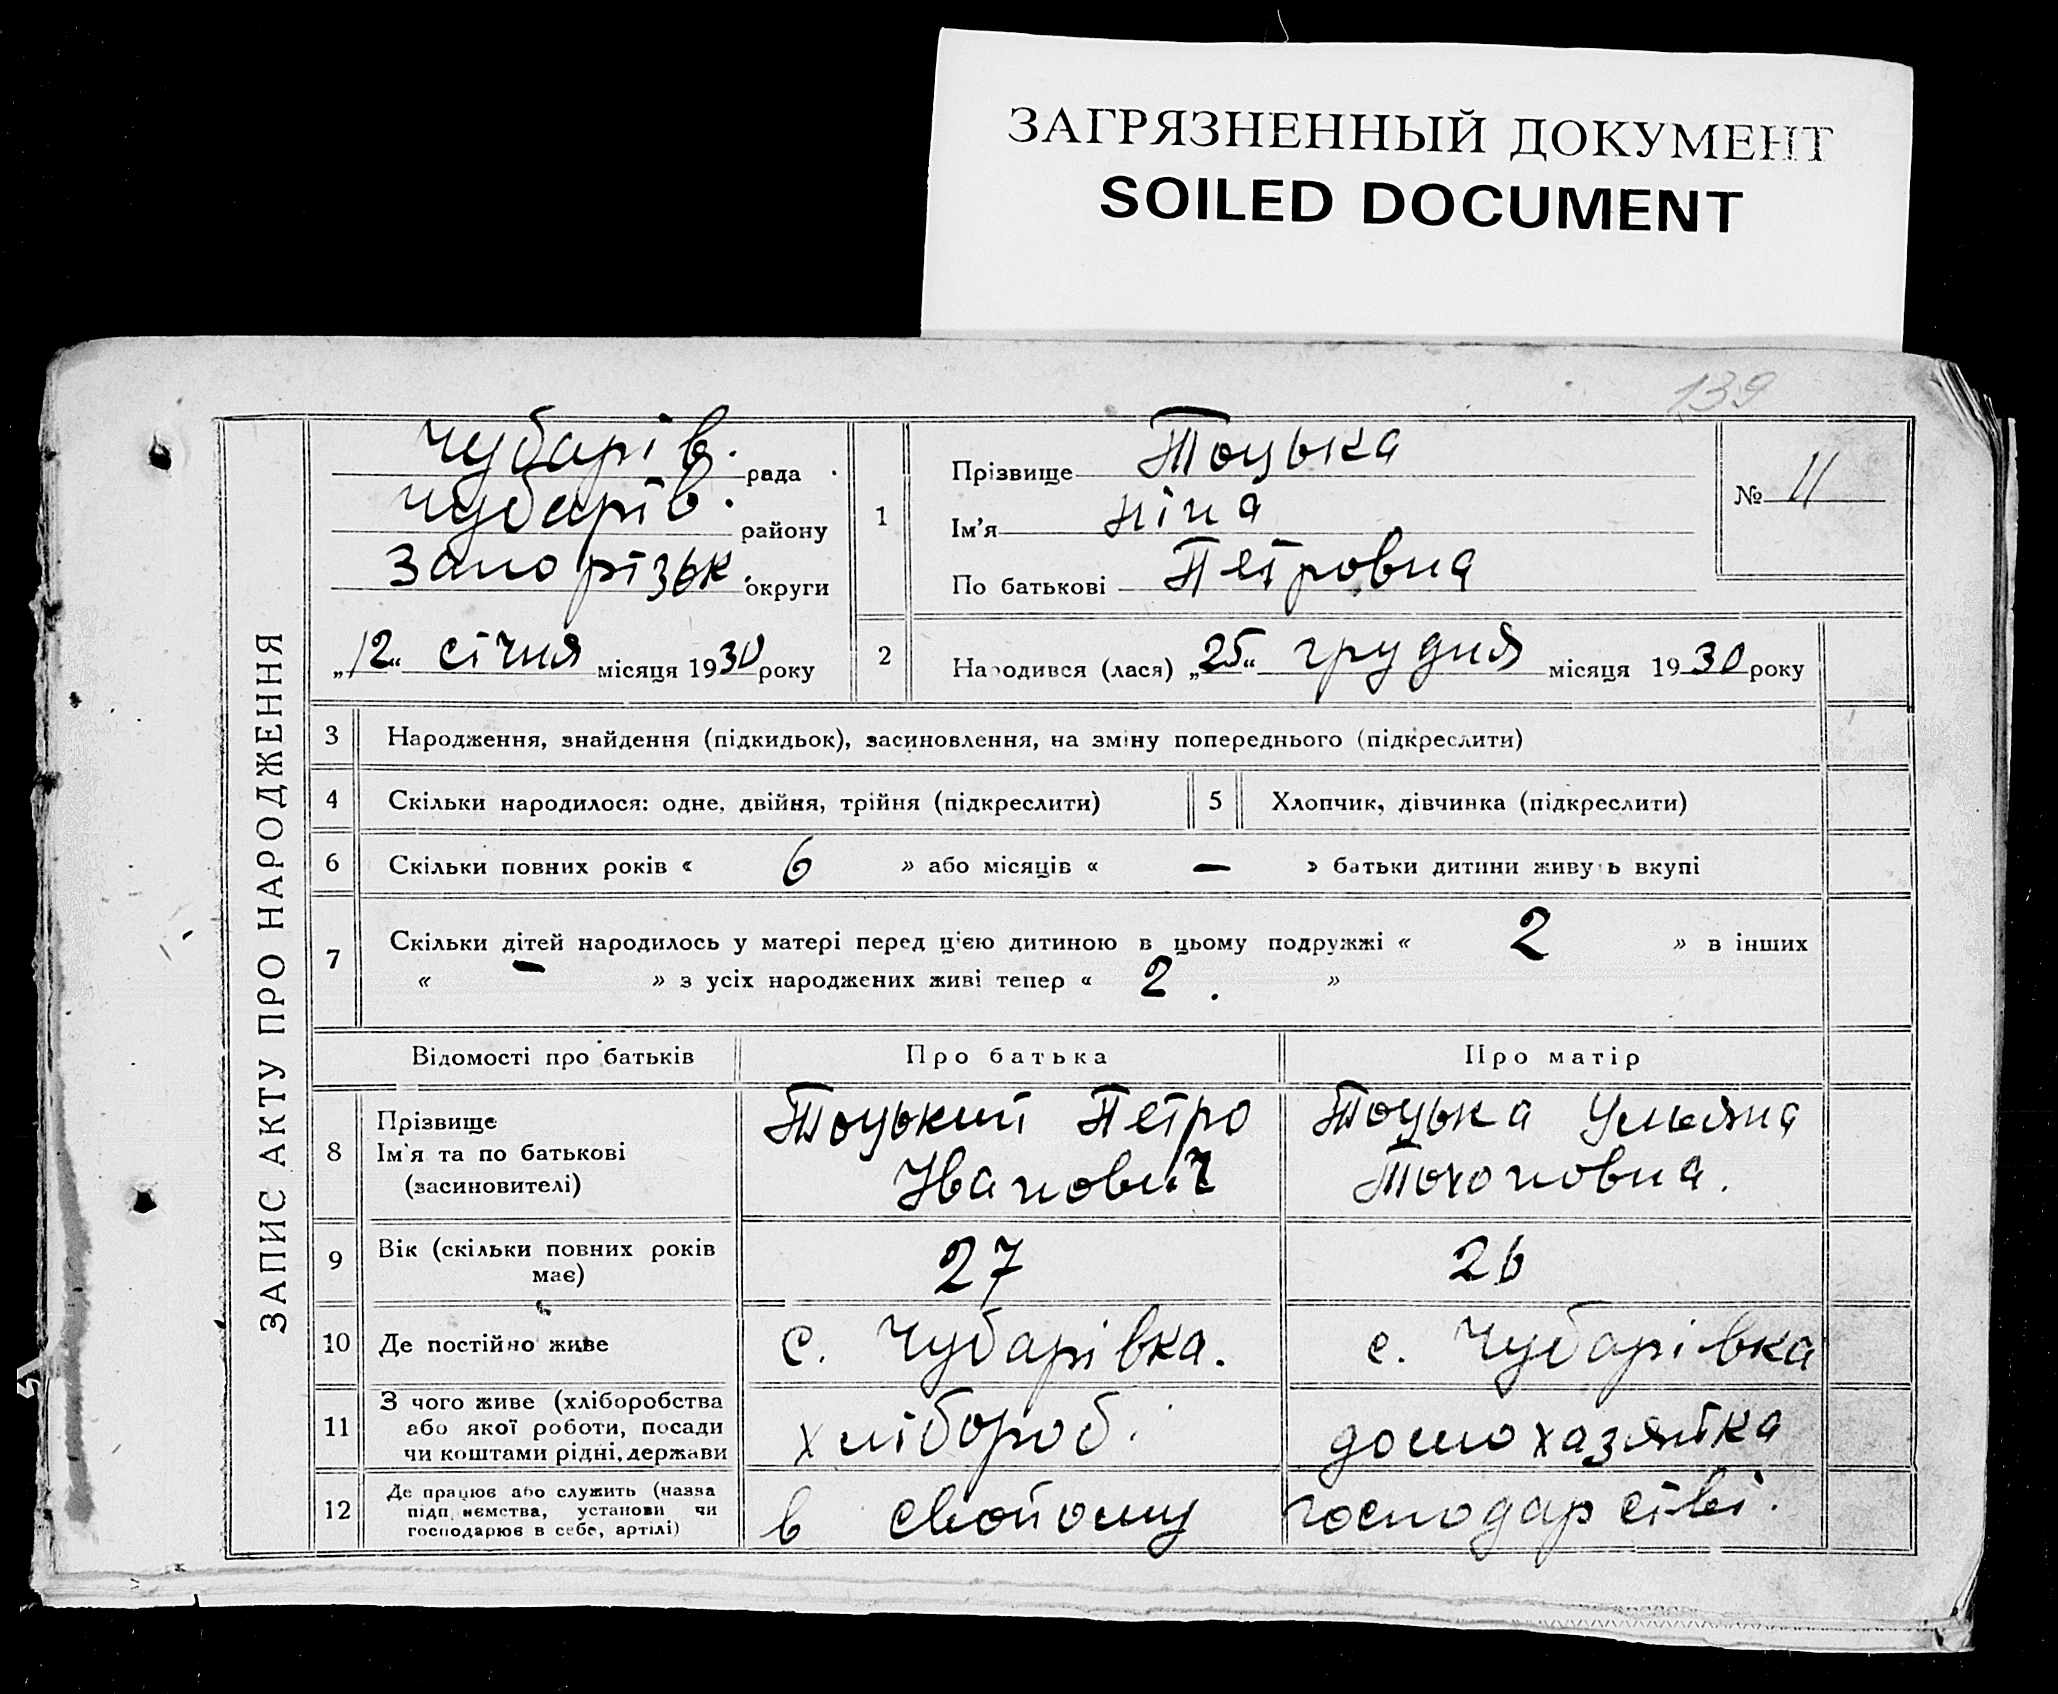 ЗАГРЯЗНЕННЫЙ ДОКУМЕНТ
SOILED DOCUMENT
139
ЗАПИС АКТУ ПРО НАРОДЖЕННЯ
Чубарів. рада
Чубарів. району
Запорізьк. округи
„12“ січня місяця 1930 року
1
Прізвище Тоцька
Ім'я Ніна
По батькові Петровна
№ 11
2
Народився (лася) „25“ грудня місяця 1930 року
3 Народження, знайдення (підкидьок), засиновлення, на зміну попереднього (підкреслити)
4 Скільки народилося: одне, двійня, трійня (підкреслити) 5 Хлопчик, дівчинка (підкреслити)
6 Скільки повних років « 6 » або місяців « — » батьки дитини живуть вкупі
7 Скільки дітей народилось у матері перед цією дитиною в цьому подружжі « 2 » в інших
« — » з усіх народжених живі тепер « 2. »
Відомості про батьків Про батька Про матір
8 Прізвище
Ім'я та по батькові
(засиновителі)
Тоцький Петро
Іванович
Тоцька Ульяна
9 Вік (скільки повних років
має)
27 26
10 Де постійно живе с. Чубарівка. с. Чубарівка
11 З чого живе (хліборобства
або якої роботи, посади
чи коштами рідні, держави
хлібороб. домохазяйка
12 Де працює або служить (назва
підприємства, установи чи
господарює в себе, артілі)
в свойому господарстві.